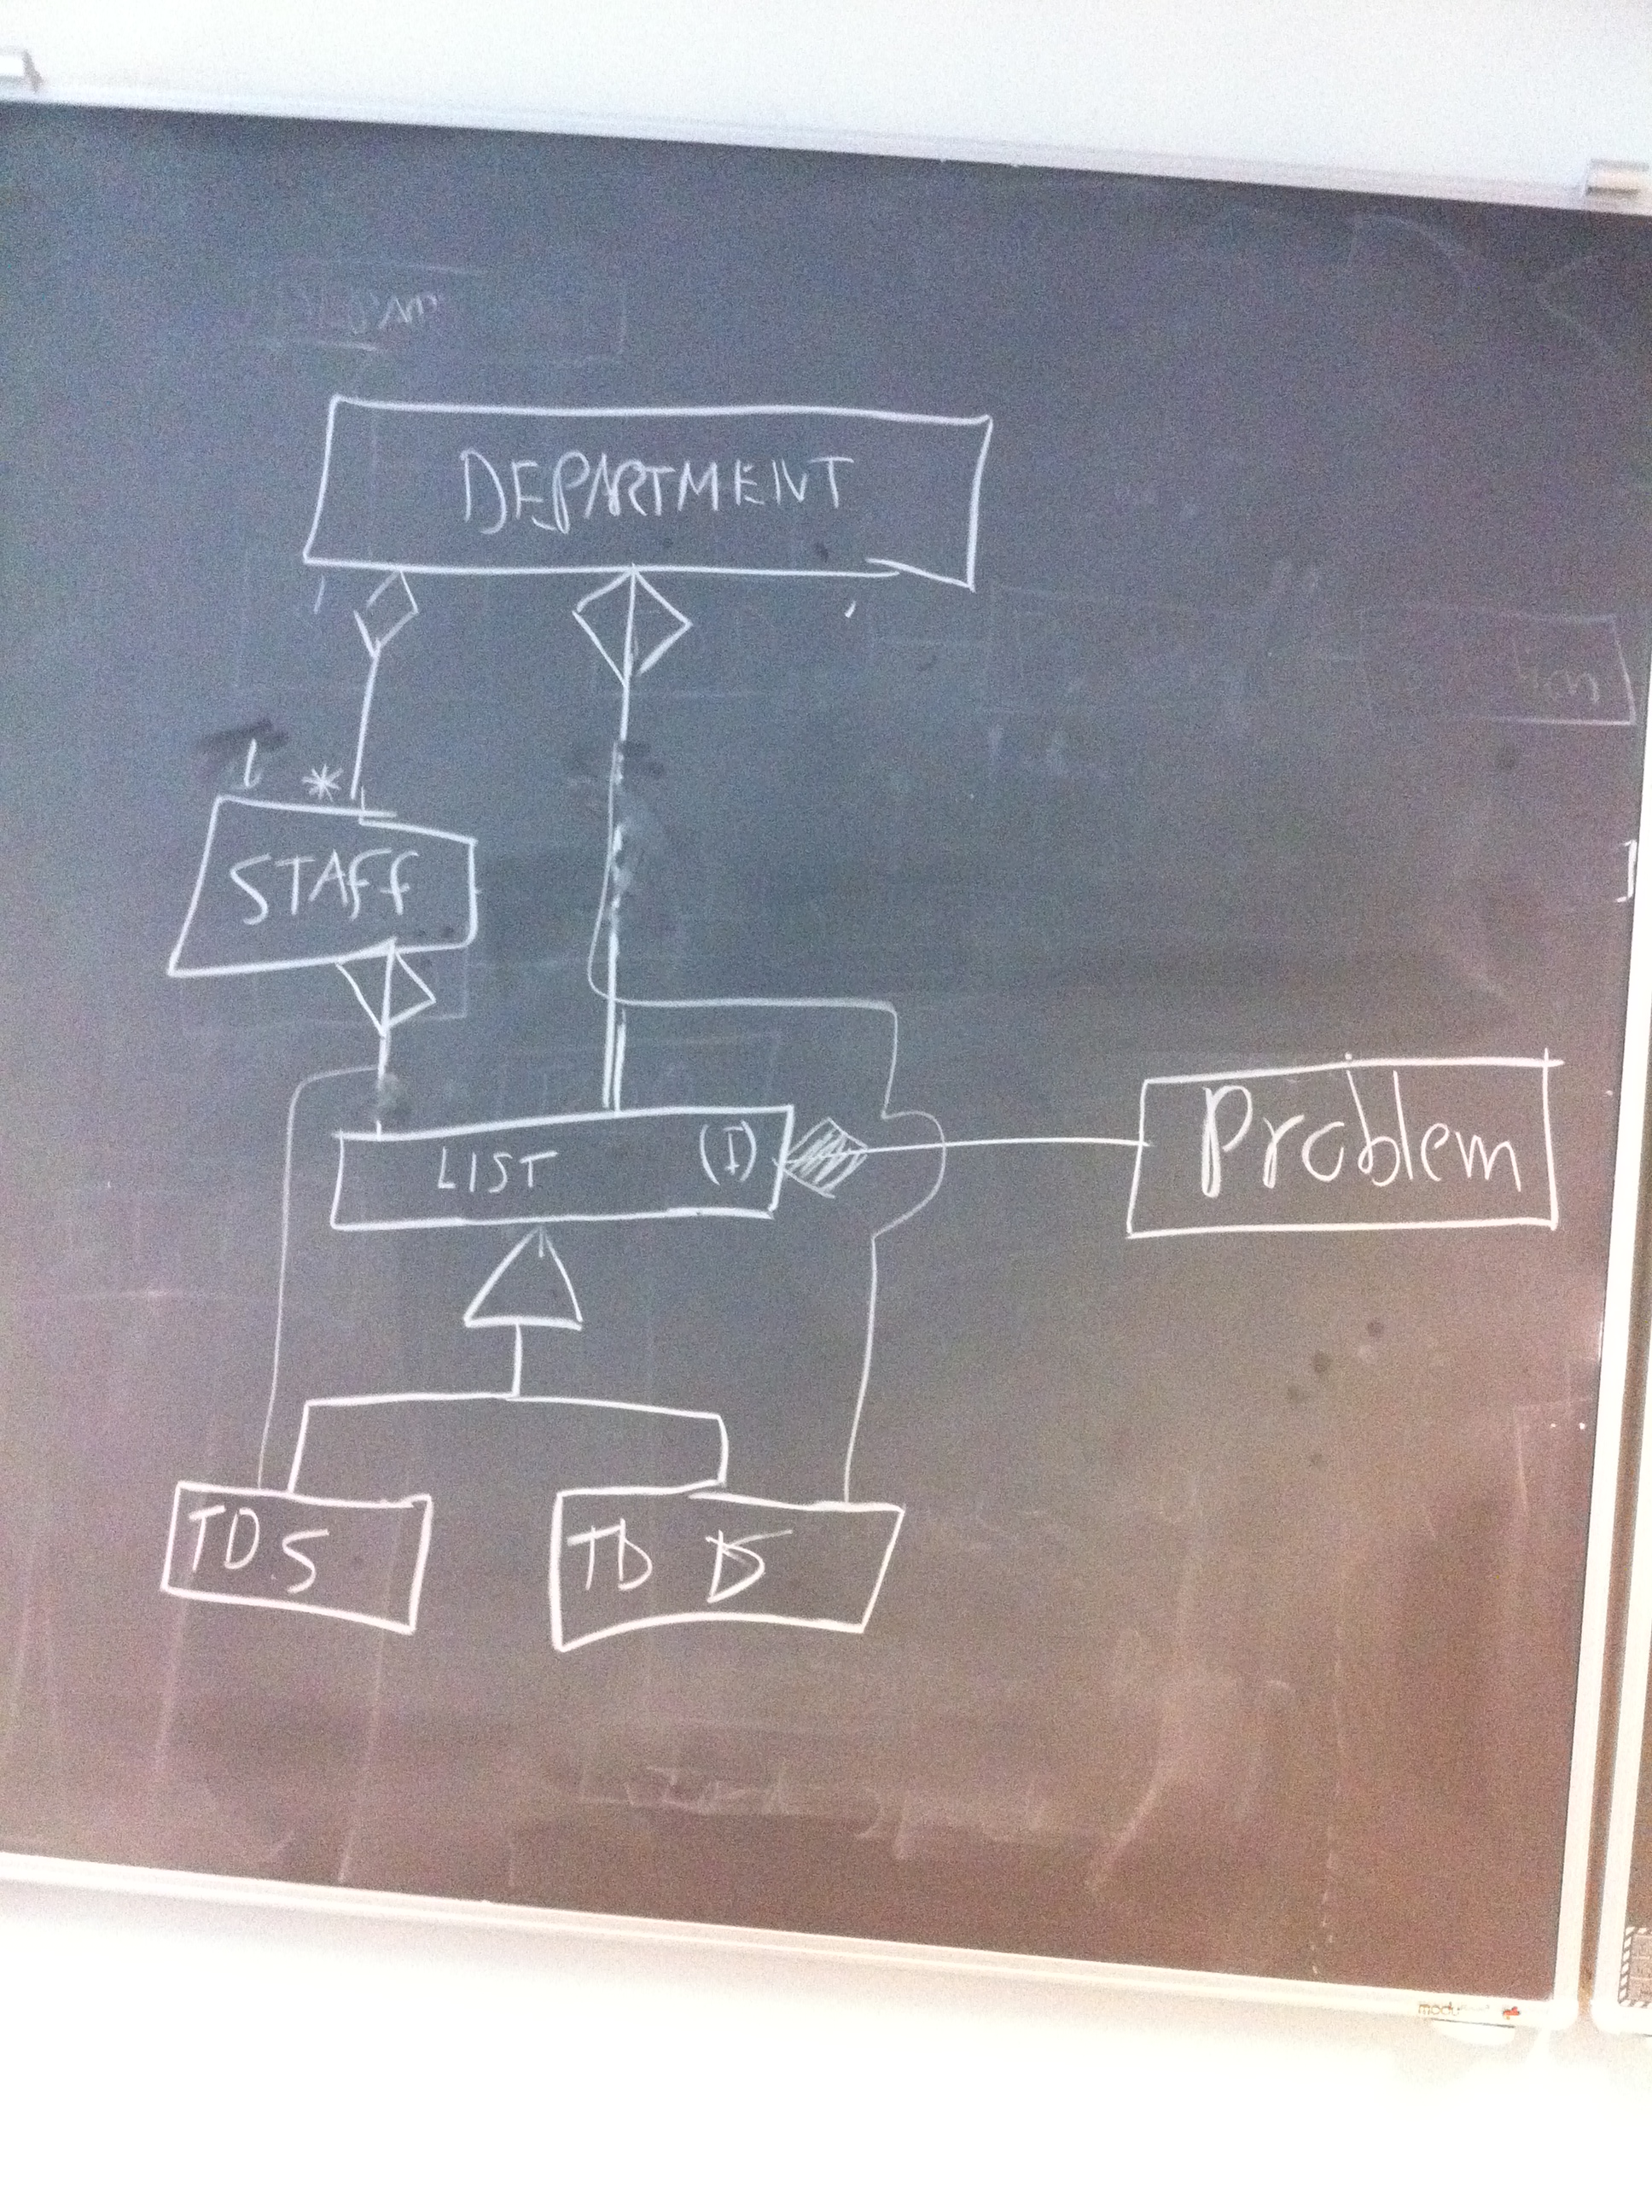 DEPARTMENT
1 *
STAFF
LIST (I)
Problem
TDS